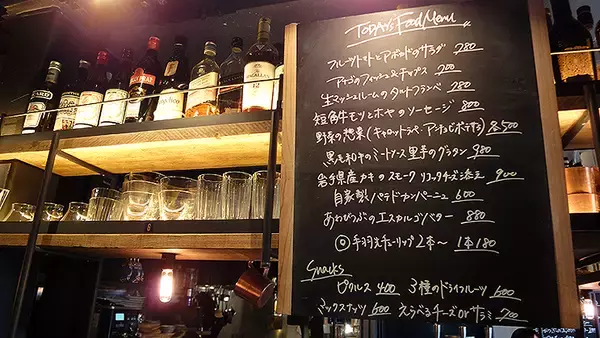 TODAY's Food Menu
フルーツトマトとアボカドのサラダ 780
アナゴのフィッシュ&チップス 700
生マッシュルームのタルトフランベ 780
短角牛モツとホヤのソーセージ 800
野菜の惣菜(キャロットラペ・アンチョビポテサラ)各500
黒毛和牛のミートソース 里芋のグラタン 980
岩手県産カキのスモーク リコッタチーズ添え 900
自家製パテドカンパーニュ 600
あわびつぶのエスカルゴバター 880
◎手羽先チューリップ2本〜 1本180
Snacks
ピクルス 400 3種のドライフルーツ 600
ミックスナッツ 600 えらべるチーズorサラミ 700